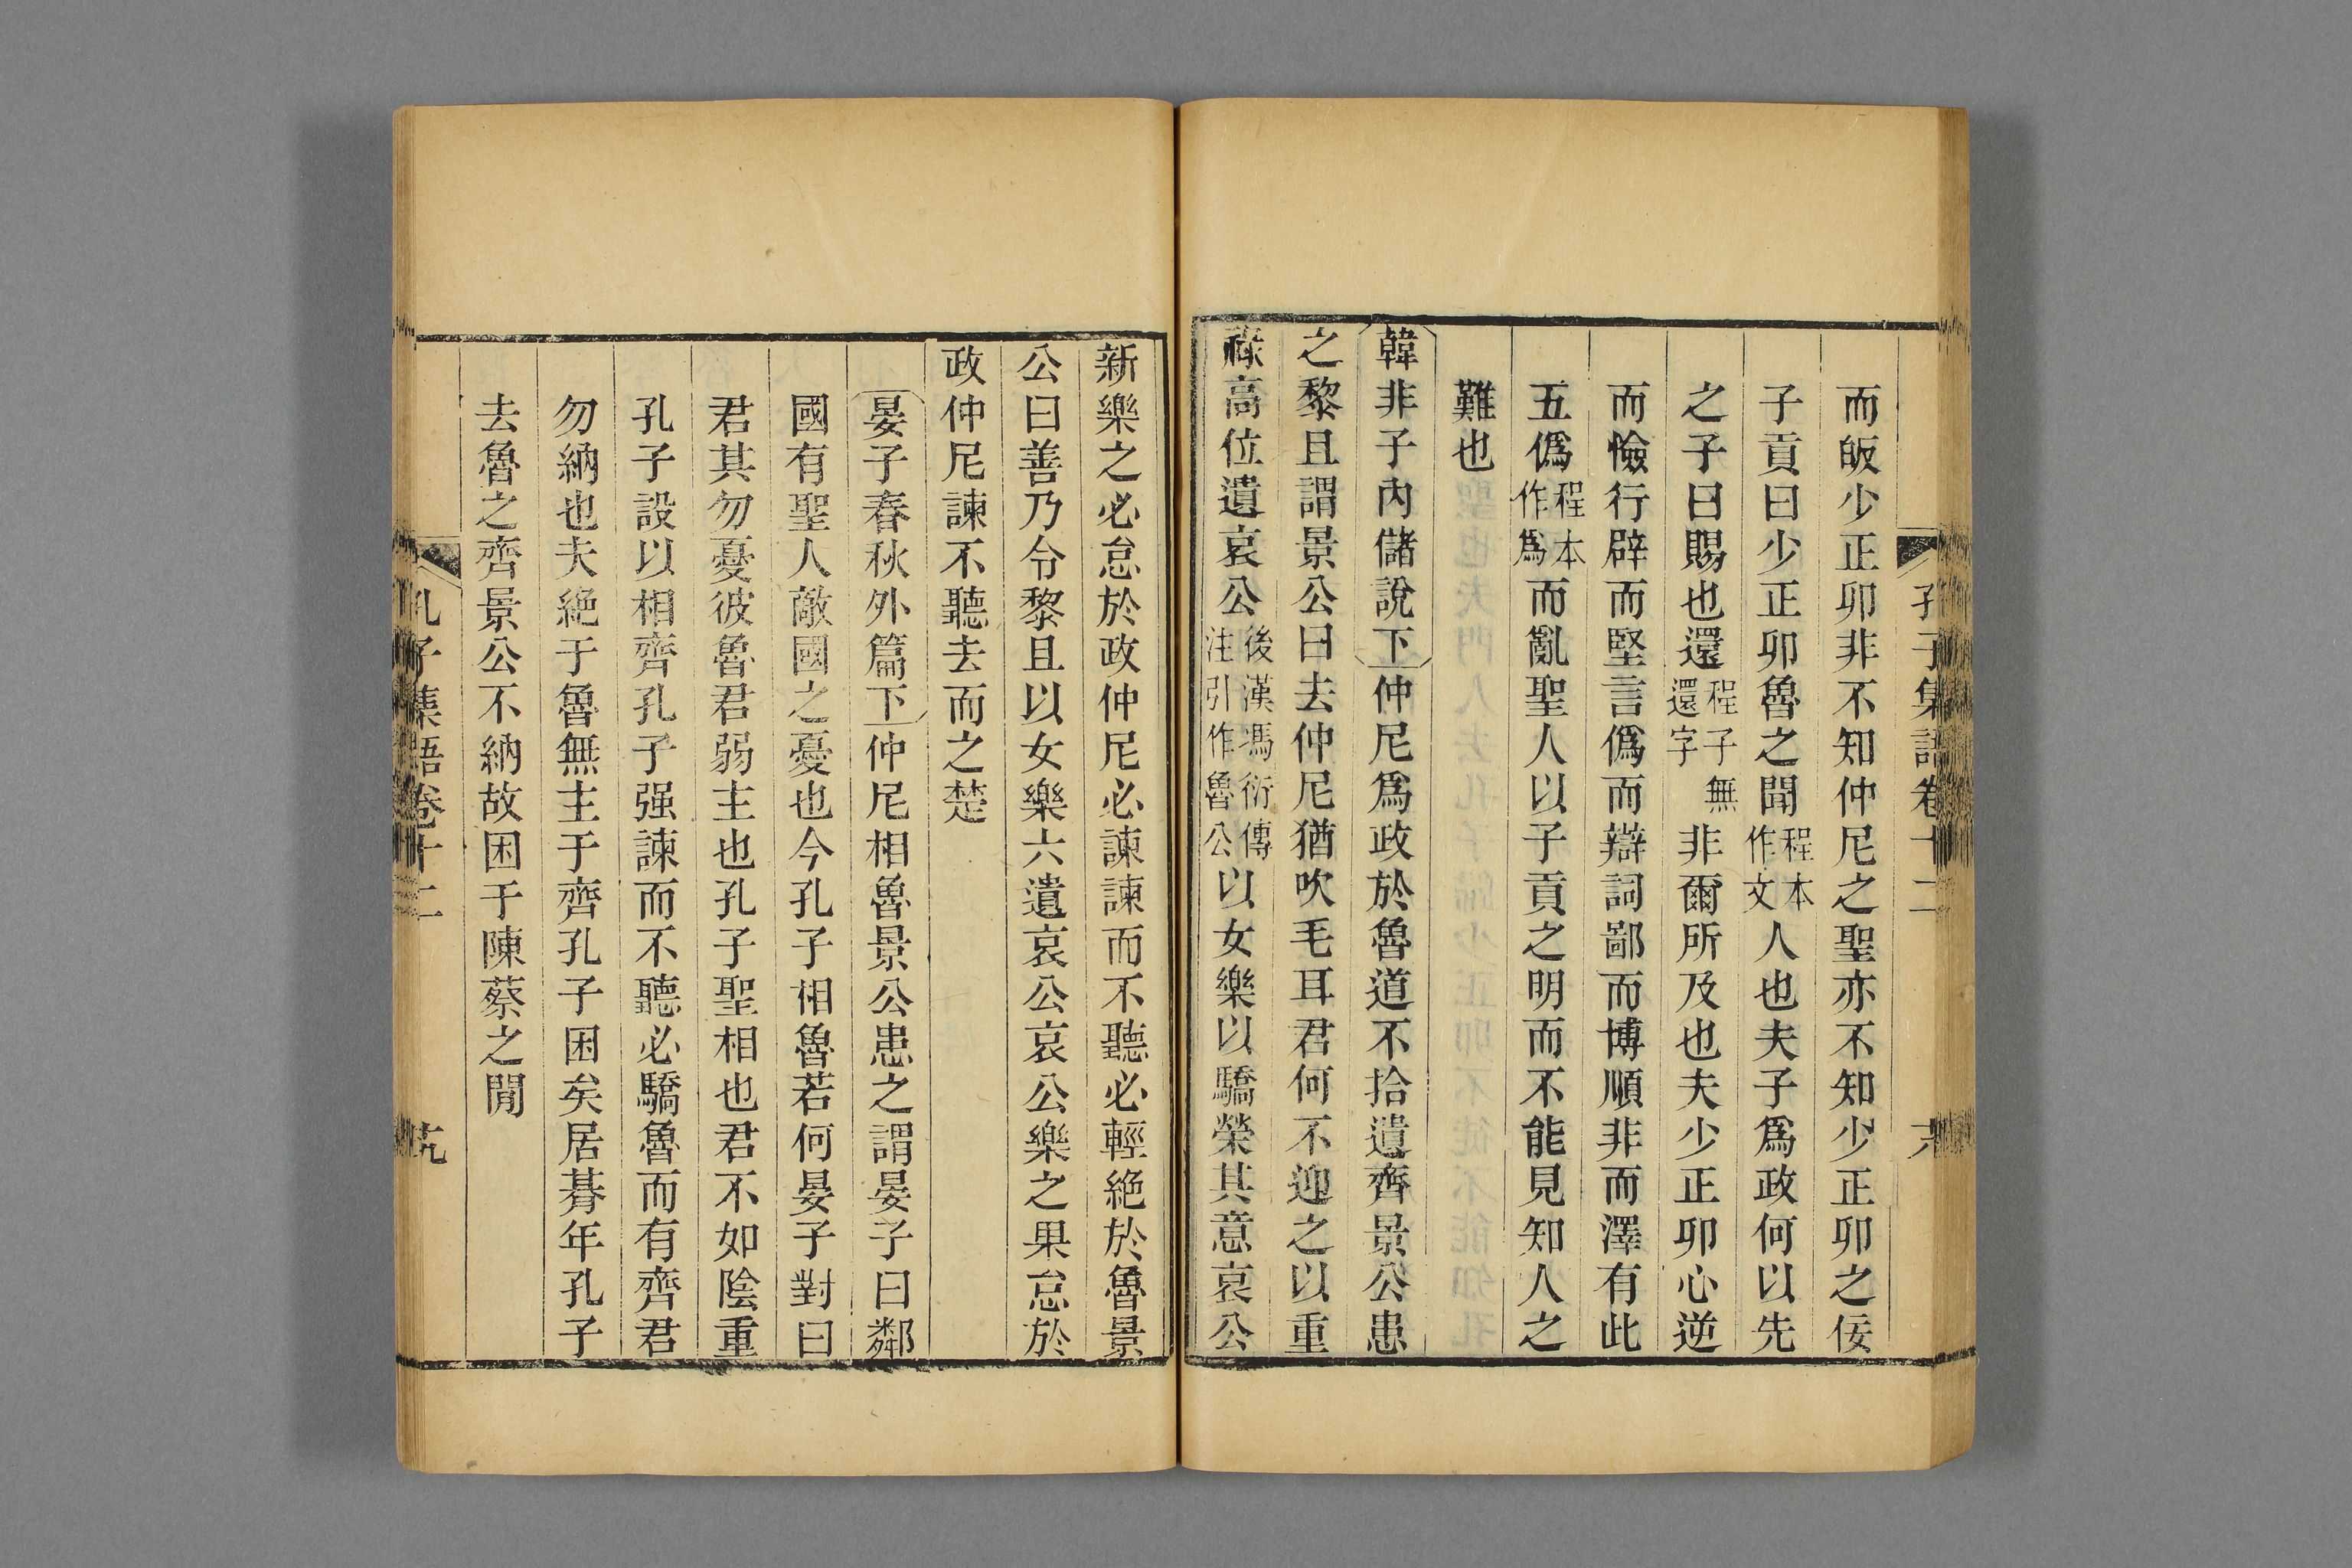 孔子集語卷十二
而皈少正卯非不知仲尼之聖亦不知少正卯之佞
子貢曰少正卯魯之聞程本作文人也夫子爲政何以先
之子曰賜也還程子無還字非爾所及也夫少正卯心逆
而憸行辟而堅言僞而辯詞鄙而博順非而澤有此
五僞程本作爲而亂聖人以子貢之明而不能見知人之
難也
韓非子內儲說下仲尼爲政於魯道不拾遺齊景公患
之黎且謂景公曰去仲尼猶吹毛耳君何不迎之以重
祿高位遺哀公後漢馮衍傳注引作魯公以女樂以驕榮其意哀公
新樂之必怠於政仲尼必諫諫而不聽必輕絶於魯景
公曰善乃令黎且以女樂六遺哀公哀公樂之果怠於
政仲尼諫不聽去而之楚
晏子春秋外篇下仲尼相魯景公患之謂晏子曰鄰
國有聖人敵國之憂也今孔子相魯若何晏子對曰
君其勿憂彼魯君弱主也孔子聖相也君不如陰重
孔子設以相齊孔子强諫而不聽必驕魯而有齊君
勿納也夫絶于魯無主于齊孔子困矣居朞年孔子
去魯之齊景公不納故困于陳蔡之閒
孔子集語卷十二